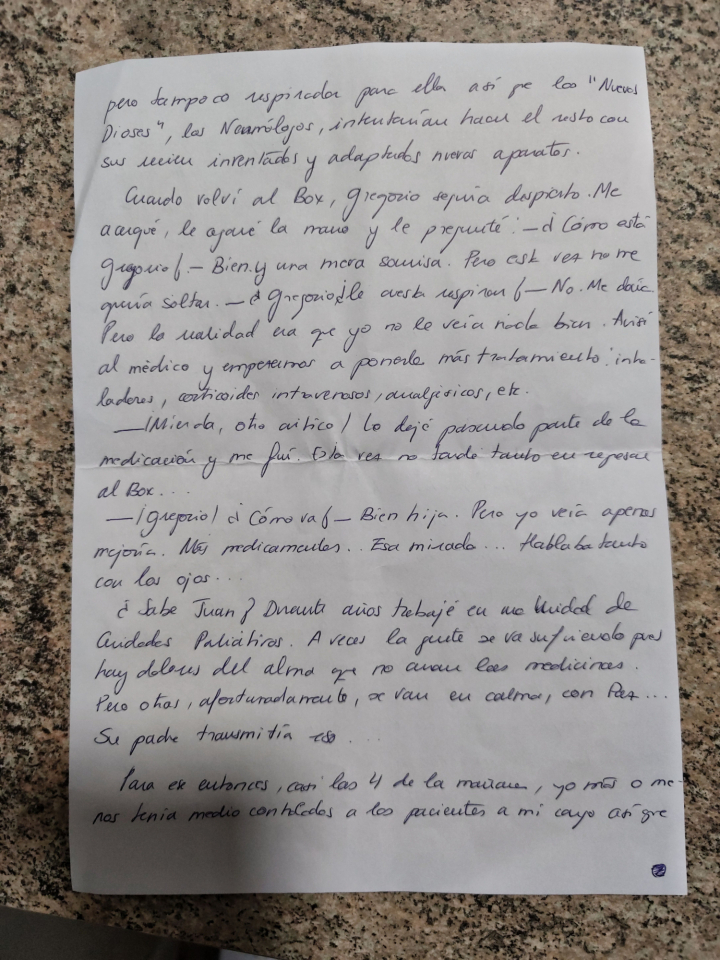 pero tampoco respirador para ella así que los "Nuevos
Dioses", los Neumólogos, intentarían hacer el resto con
sus recien inventados y adaptados nuevos aparatos.
Cuando volví al Box, Gregorio seguía despierto. Me
acerqué, le agarré la mano y le pregunté: - ¿ Cómo está
Gregorio? - Bien. y una mera sonrisa. Pero esta vez no me
quería soltar. - ¿ Gregorio, le cuesta respirar? - No. Me decía
Pero la realidad era que yo no le veía nada bien. Avisé
al médico y empezamos a ponerle más tratamiento: inha-
ladores, corticoides intravenosos, analgésicos, etc.
- ¡Mierda, otro crítico! Lo dejé pasando parte de la
medicación y me fuí. Esta vez no tardé tanto en regresar
al Box...
- ¡Gregorio! ¿ Cómo va? - Bien hija. Pero yo veía apenas
mejoría. Más medicamentos.. Esa mirada... Hablaba tanto
con los ojos...
¿ Sabe Juan? Durante años trabajé en una Unidad de
Cuidados Paliativos. A veces la gente se va sufriendo pues
hay dolores del alma que no curan las medicinas.
Pero otras, afortunadamente, se van en calma, con Paz...
Su padre transmitía eso...
Para ese entonces, casi las 4 de la mañana, yo más o me-
nos tenía medio controlados a los pacientes a mi cargo así que
2